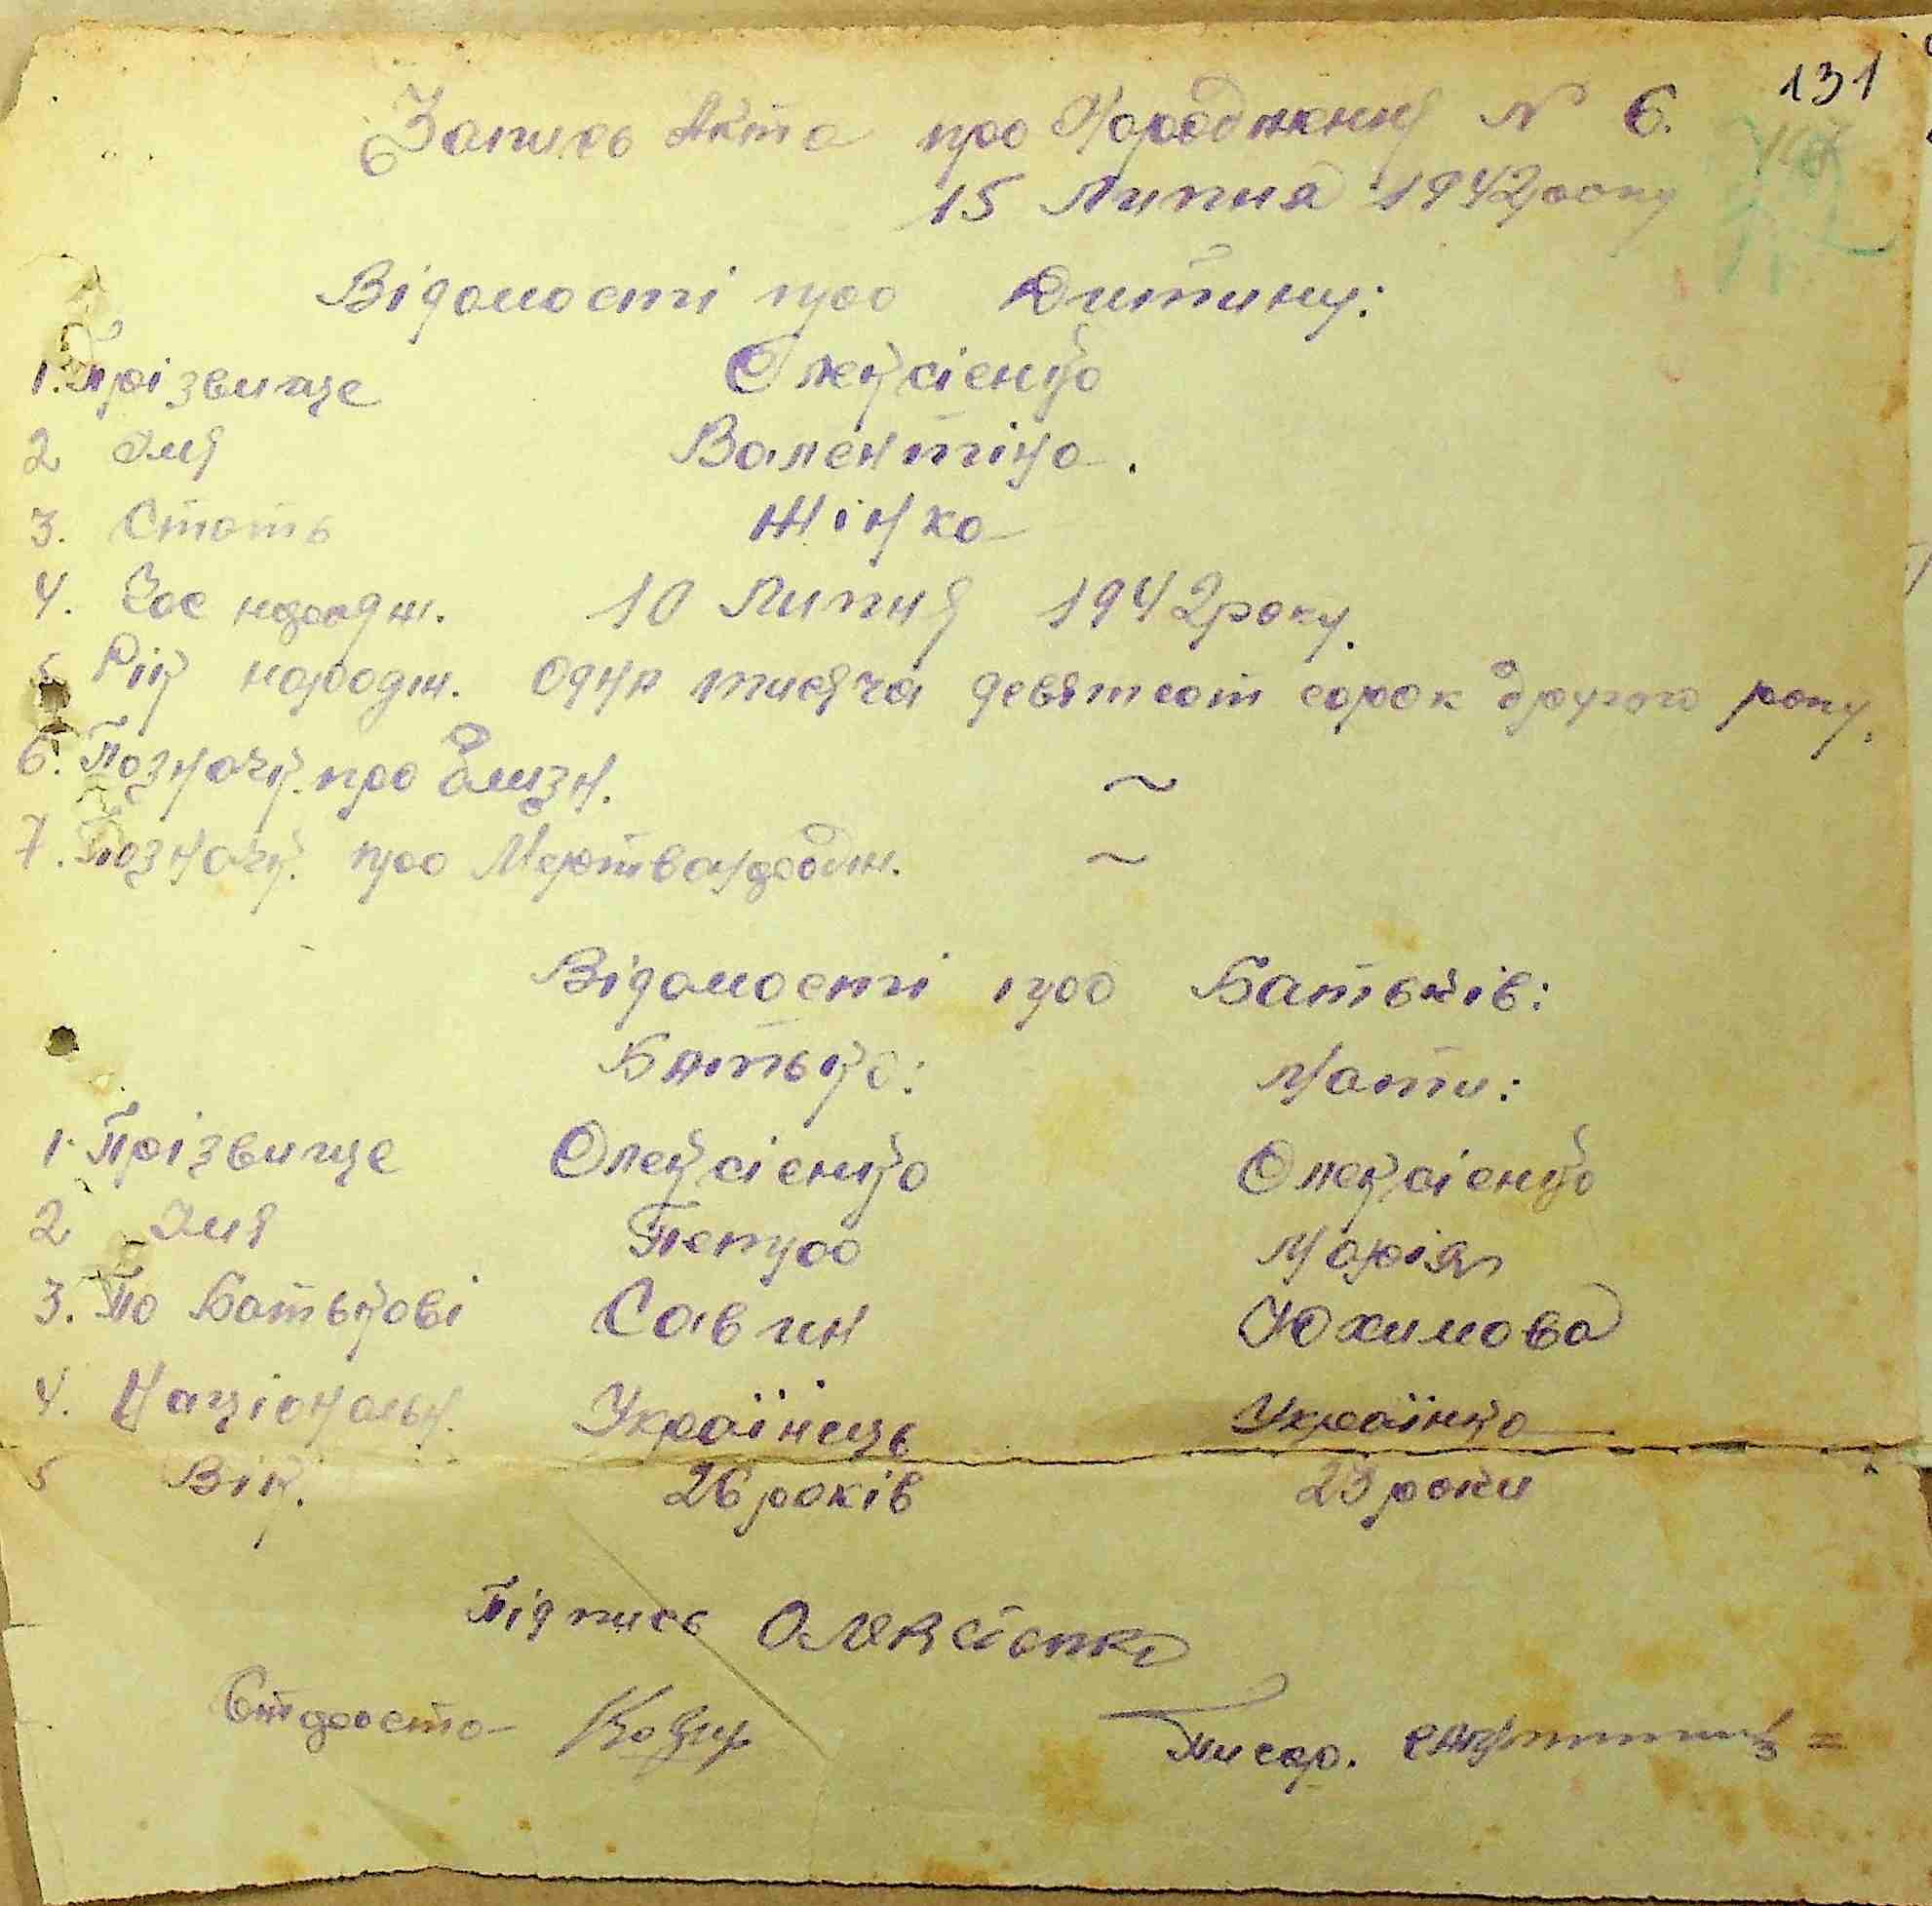 131
Запись Акта про Народження № 6.
15 Липня 1942 року
Відомості про Дитину:
1. Прізвище Олексієнко
2 Імя Валентіна.
3. Стать Жінка
4. Час народж. 10 Липня 1942 року.
5 Рік народж. Одна тисяча девятсот сорок другого року.
6. Позначк. про близн. ~
7. Позначк. про Мертванародж. ~
Відомості про Батьків:
Батько: Мати:
1. Прізвище Олексієнко Олексієнко
2 Імя Петро Марія
3. По Батькові Савин Юхимова
4. Національн. Українець Українка
5 Вік. 26 років 23 роки
Підпись Олексієнко
Староста Козир Писар.